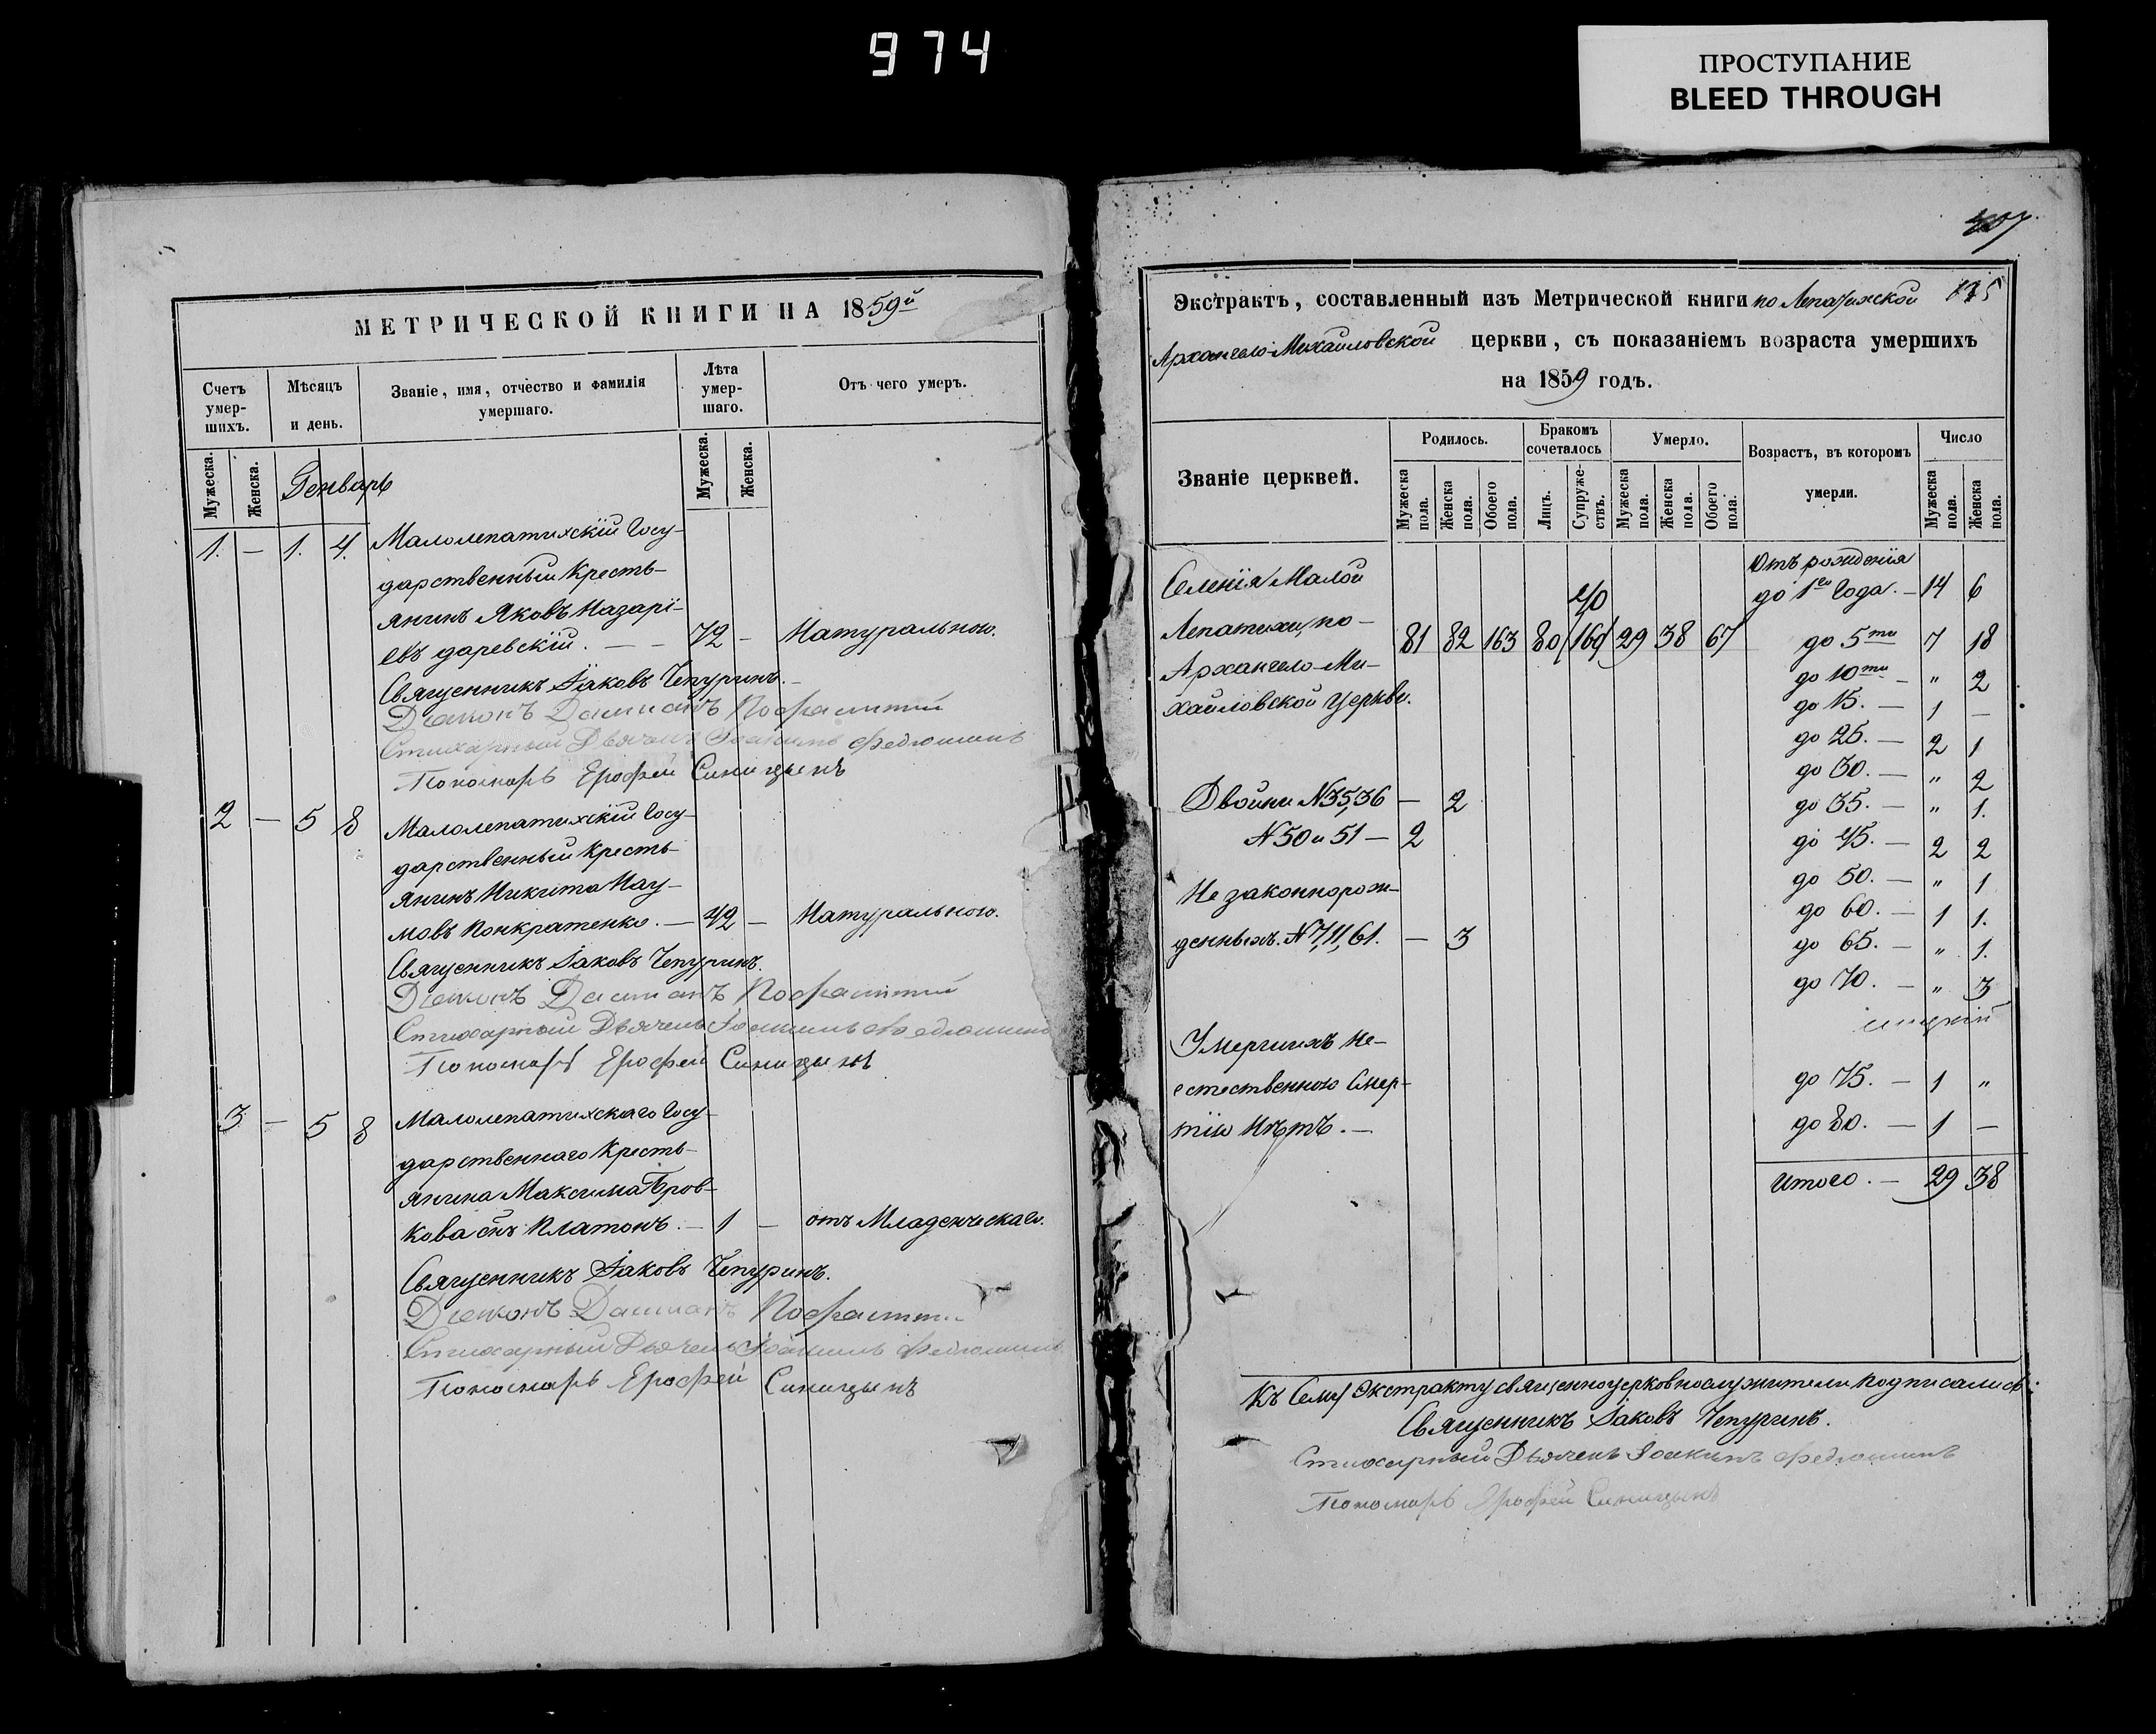 974
ПРОСТУПАНИЕ
BLEED THROUGH
МЕТРИЧЕСКОЙ КНИГИ НА 1859й
Счетъ умер-шихъ.
Мѣсяцъ и день.
Званіе, имя, отчество и фамилія умершаго.
Лѣта умер-шаго.
Отъ чего умеръ.
Мужеска. Женска. Генварь Мужеска. Женска.
1. — 1. 4. Малолепатихскій Госу-
дарственный Кресть-
янинъ Яковъ Назарі-
евъ даревскій. — — 72 — Натуральною.
Священникъ Іаковъ Чепуринъ.
Діаконъ Даміанъ
Стихарный Дьячекъ Іоакимъ Федюшинъ
Пономарь Ерофей Синицынъ
2 — 5 8 Малолепатихскій Госу-
дарственный Кресть-
янинъ Никита Нау-
мовъ Понкратенко. — 42 — Натуральною.
Священникъ Іаковъ Чепуринъ.
Діаконъ Даміанъ
Стихарный Дьячекъ Іоакимъ Федюшинъ
Пономарь Ерофей Синицынъ
3 — 5 8 Малолепатихскаго Госу-
дарственнаго Кресть-
янина Максима Бров-
кова снъ Платонъ. — 1 — отъ Младенческаго.
Священникъ Іаковъ Чепуринъ.
Діаконъ Даміанъ
Стихарный Дьячекъ Іоакимъ Федюшинъ
Пономарь Ерофей Синицынъ
Экстрактъ, составленный изъ Метрической книги по Лепатихской
Архангело-Михайловской церкви, съ показаніемъ возраста умершихъ
на 1859 годъ.
Званіе церквей.
Родилось.
Бракомъ сочеталось
Умерло.
Возрастъ, въ которомъ умерли.
Число
Мужеска пола. Женска пола. Обоего пола. Лицъ. Супруже-ствъ. Мужеска пола. Женска пола. Обоего пола. Мужеска пола. Женска пола.
Селенія Малой
Лепатихи, по
Архангело-Ми-
хайловской Церкви.
81 82 163 80 40 160 29 38 67
Двойни N35,36 — 2
N50 и 51 — 2
Незаконнорож-
денныхъ. N7,11,61. — 3
Умершихъ не-
естественною Смер-
тію Нѣтъ. —
Отъ рожденія
до 1го Года. — 14 6
до 5ти 7 18
до 10ти — " 2
до 15. — 1 —
до 25. — 2 1
до 30. — " 2
до 35. — " 1.
до 45. — 2 2
до 50. — " 1
до 60. — 1 1.
до 65. — " 1.
до 70. — " 3
до 75. — 1 "
до 80. — 1 —
Итого. — 29 38
Къ Сему Экстракту священноцерковнослужители подписались:
Священникъ Іаковъ Чепуринъ.
Стихарный Дьячекъ Іоакимъ Федюшинъ
Пономарь Ерофей Синицынъ